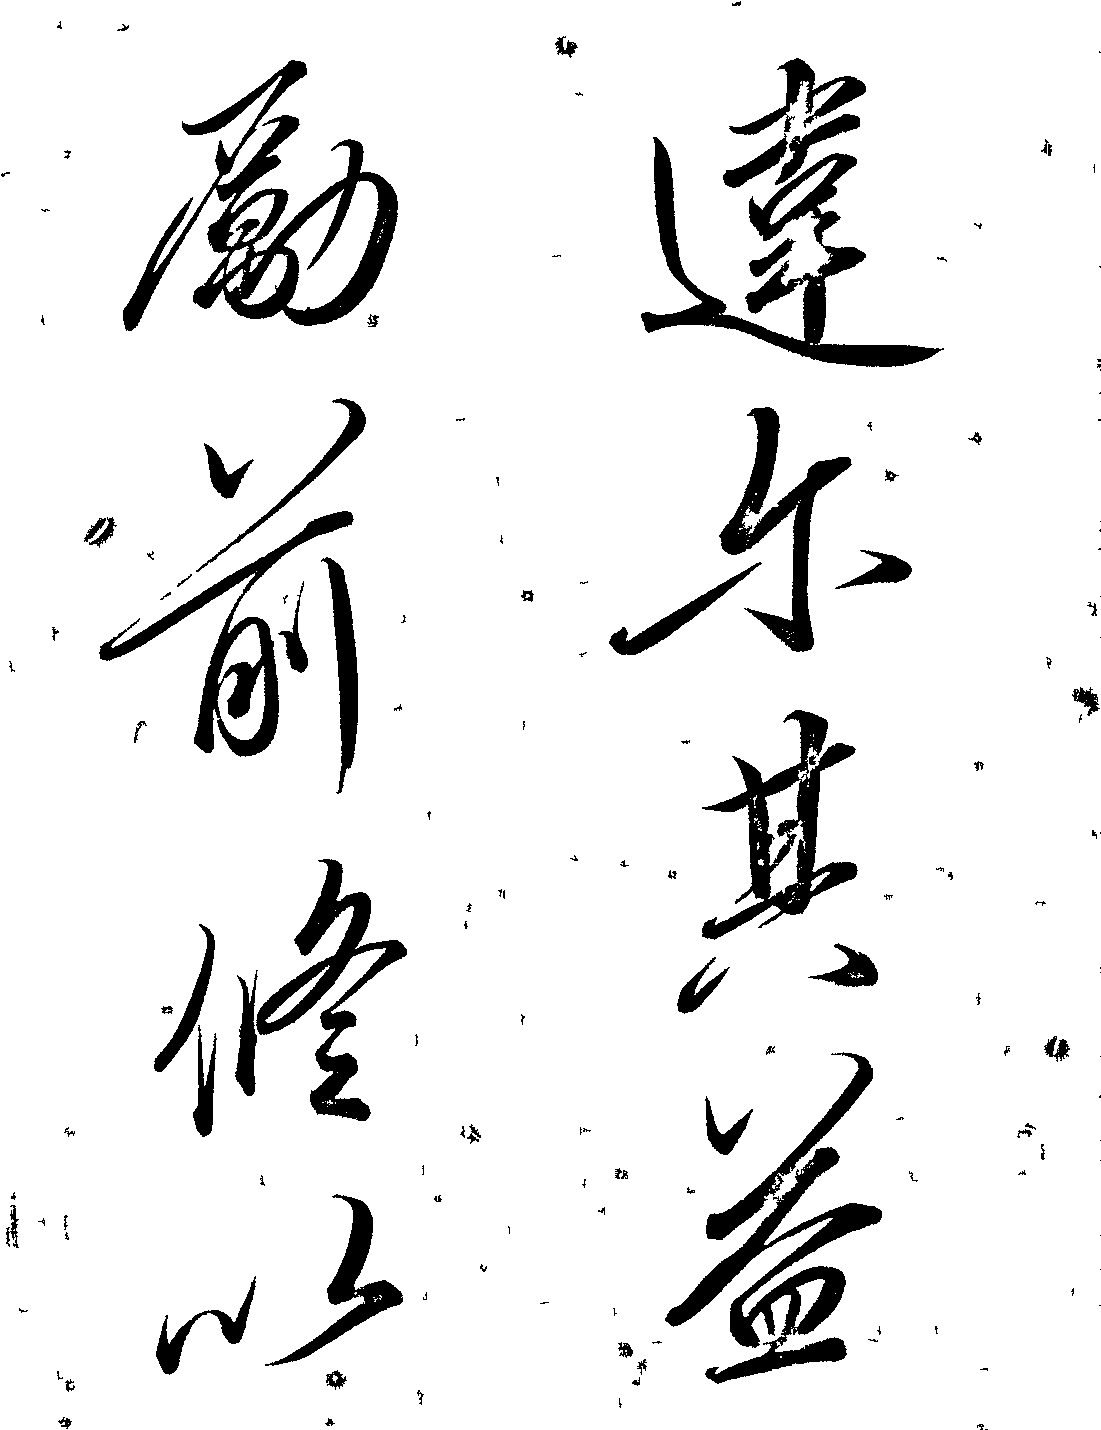 違尓其益
勵前修以